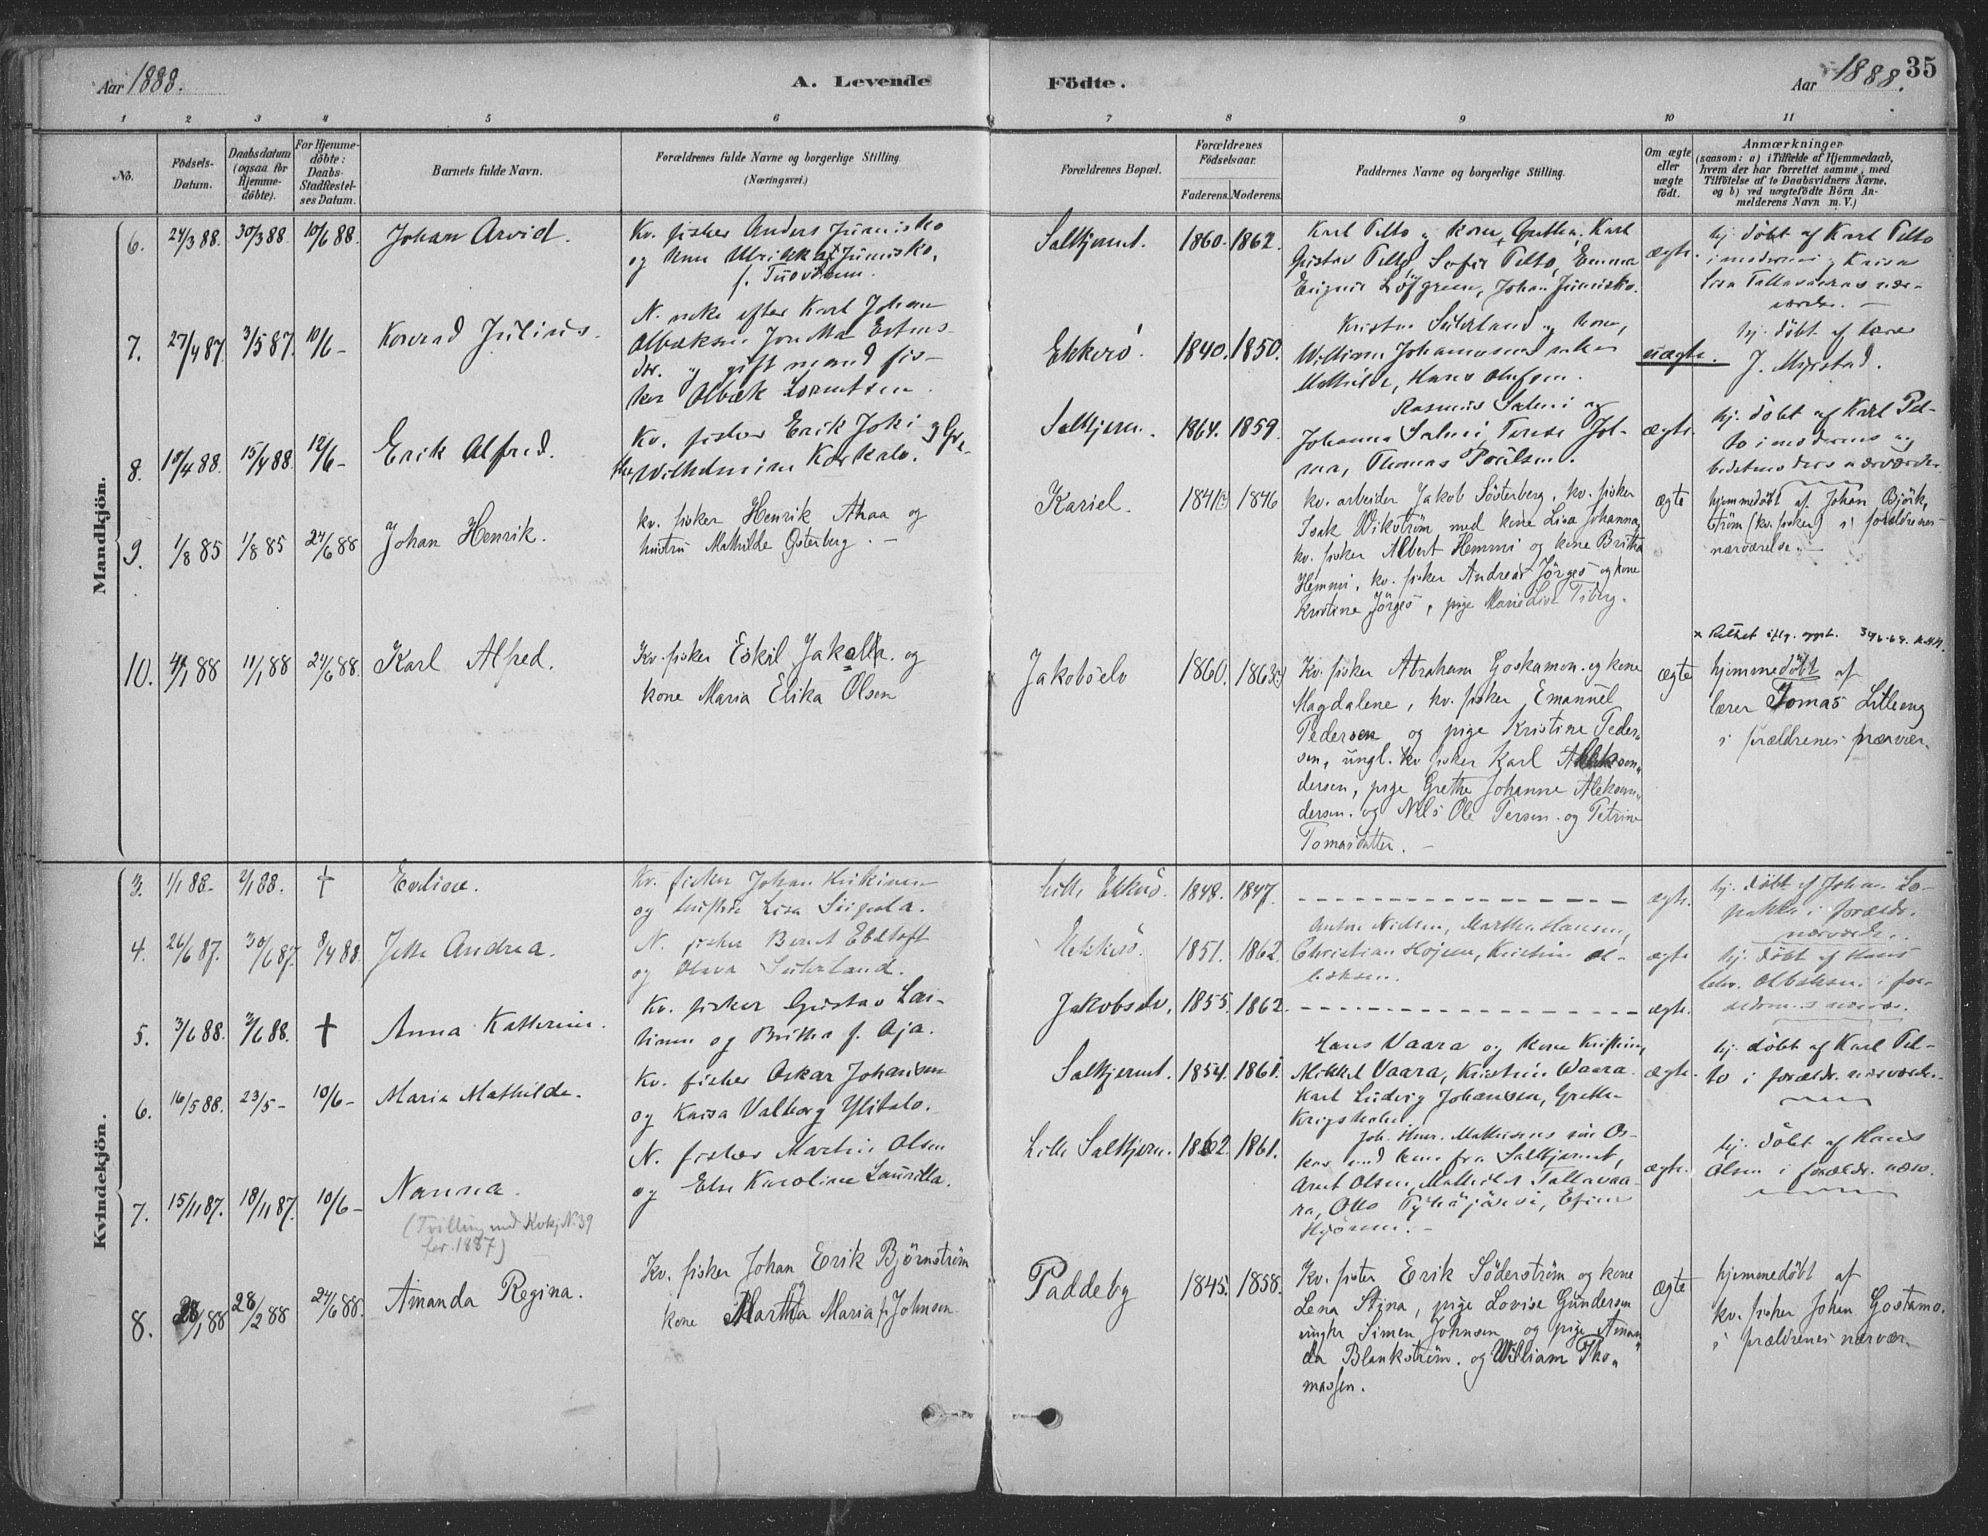 Aar 1888.
A. Levende
Födte.
Aar 1888.
35
1 2 3 4 5 6 7 8 9 10 11
No.
Födsels-
Datum.
Daabsdatum
(ogsaa for
Hjemme-
döbte).
For Hjemme-
döbte:
Daabs-
Stadfæstel-
ses Datum.
Barnets fulde Navn.
Forældrenes fulde Navne og borgerlige Stilling.
(Næringsvei.)
Forældrenes Bopæl.
Forældrenes
Födselsaar.
Faderens. Moderens.
Faddernes Navne og borgerlige Stilling.
Om ægte
eller
uægte
födt.
Anmærkninger
(saasom: a) i Tilfælde af Hjemmedaab,
hvem der har forrettet samme, med
Tilföielse af to Daabsvidners Navne,
og b) ved uægtefödte Börn An-
melderens Navn m. V.)
Mandkjön.
6. 24/3 88. 30/3 88 10/6 88. Johan Arvid.
Kv. fisker Anders Junisko
og kone Ulrikka Juniska,
Salthjernt. 1860. 1862.
Karl Pelto og kone Gretha, Karl
Gustav Pelto, Sofie Pelto, Emma
Löfgreen, Johan Junisko.
ægte.
hj. döbt af Karl Pelto
7. 27/4 87. 3/5 87. 10/6 - Konrad Julius.
N. enke efter Karl Johan
Olbæksen
og gift mand fis-
ker Olbæk Lorentsen.
Ekkerö. 1840. 1850.
Mathilde, Hans Olufsen.
uægte.
hj. döbt af lærer
J. Myrstad.
8. 10/4 88. 15/4 88. 12/6 - Erik Alfred.
Kv. fisker Erik Joki og Gre-
the Wilhelmine Korkalo.
Salthjern. 1864. 1859.
Rasmus Salmi og
Johanna Salmi, Terese Jol-
ma, Thomas Poulsen.
ægte.
hj. döbt af Karl Pel-
to i moderens og
bedstemoders nærværelse.
9. 1/8 85 1/8 85 24/6 88 Johan Henrik.
kv. fisker Henrik Ahaa og
hustru Mathilde Österberg. -
Kariel. 1841 1846
kv. arbeider Jakob Sösterberg, kv. fisker
Isak Wikström med kone Lisa Johanna,
kv. fisker Albert Hemmi og kone Britha
Hemmi, kv. fisker Andreas Jörges og kone
Kristine Jörges, pige Marie Lisa Tiberg.
ægte
hjemmedöbt af Johan Björk-
ström (kv. fisker) i forældrenes
nærværelse. -
10. 4/1 88 11/1 88 24/6 88 Karl Alfred.
Kv. fisker Eskil Jakola og
kone Maria Erika Olsen
Jakobselv 1860. 1863
Kv. fisker Abraham Goskamon og kone
Magdalene, kv. fisker Emanuel
Pedersen og pige Kristine Peder-
sen, ungk. kv fisker Karl Aleksan-
dersen, pige Grethe Johanne Aleksan-
dersen og Nils Ole Persen og Petrine
Tomasdatter. -
ægte
hjemmedöbt af
lærer Tomas Lilleeng
i forældrenes nærvær.
Kvindekjön.
3. 1/1 88. 2/1 88. † Eveline.
Kv. fisker Johan Kirkinen
og hustru Lisa Seipola.
Lille Ekkerö. 1848. 1847.
ægte.
hj. döbt af Johan La-
i forældr.
nærværelse.
4. 26/6 87. 30/6 87. 8/4 88. Jette Andrea.
N. fisker Bernt Ebeltoft
og Olava Suhrland.
Ekkerö. 1851. 1862.
Anton Nielsen, Martha Hansen,
Christian Höjsen, Kristine Ol-
bæksen.
ægte
hj. döbt af Hans
Olbæksen i for-
5. 3/6 88. 3/6 88. † Anna Katterine.
Kv. fisker Gustav Las-
og Britha f. Aja.
Jakobselv. 1855. 1862.
ægte.
6. 16/5 88. 23/5 - 10/6 - Maria Mathilde.
Kv. fisker Oskar Johansen
og Kaisa Valborg Ylitalo.
Salthjernt. 1854. 1861.
Hans Vaara og kone Kristine,
Mikkel Vaara, Kristine Waara.
Karl Ludvig Johansen, Grethe
ægte.
hj. döbt af Karl Pel-
to i forældr. nærværelse.
7. 15/11 87. 18/11 87. 10/6 - Nanna.
(Tvilling med Kvkj. No. 39
for 1887)
N. fisker Martin Olsen
og Else Karoline Laurilla.
Lille Salthjern. 1862. 1861.
Arnt Olsen, Mathilde Tallavaa-
ra, Otto Pyhäjärvi, Efine
ægte.
hj. döbt af Hans
Olsen i forældr. nærv.
8. 28/1 88 28/2 88 24/6 88. Amanda Regina.
Kv. fisker Johan Erik Björnström
og kone Martha Maria f. Johnsen
Paddeby 1845. 1858.
Kv. fisker Erik Söderström og kone
Lena Stina, pige Lovise Gundersen
ungkr Simen Johnsen og pige Aman-
da Blankström. og William Tho-
massen.
ægte
hjemmedöbt af
kv. fisker Johan Gostamo.
i forældrenes nærvær.